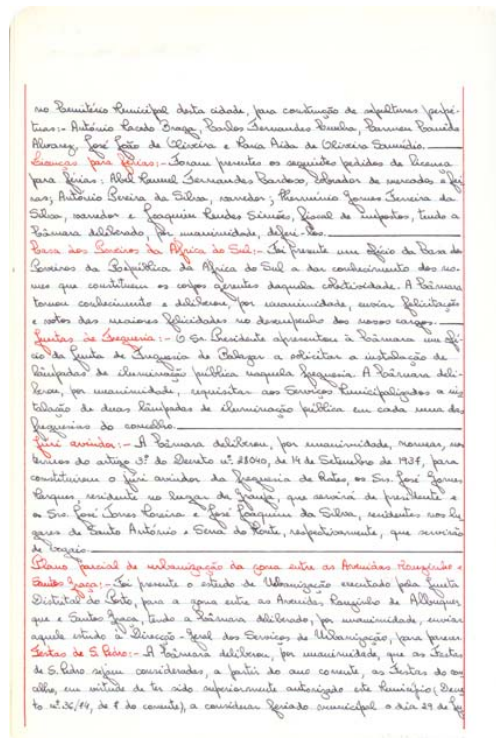 no Cemitério Municipal desta cidade, para construção de sepulturas perpé-
tuas:- António Macedo Braga, Carlos Fernandes Cumbra, Carmen
Alvarez, José João de Oliveira e Maria Aida de Oliveira
Licenças para férias:- Foram presentes os seguintes pedidos de licença
para férias: Abel Manuel Fernandes Cardoso, cobrador de mercados e fei-
ras; António Pereira da Silva, varredor; Herminio Gomes Ferreira da
Silva, varredor e Joaquim Mendes Simões, fiscal de impostos, tendo a
Câmara deliberado, por unanimidade, deferi-los.
Casa dos Poveiros da Africa do Sul:- Foi presente um ofício da Casa dos
Poveiros da República da Africa do Sul a dar conhecimento dos no-
mes que constituem os corpos gerentes daquela colectividade. A Câmara
tomou conhecimento e deliberou, por unanimidade, enviar felicitações
e votos das maiores felicidades no desempenho dos novos cargos.
Juntas de Freguesia:- O Sr. Presidente apresentou à Câmara um ofí-
cio da Junta de Freguesia de Balazar a solicitar a instalação de
lâmpadas de iluminação pública naquela freguesia. A Câmara deli-
berou, por unanimidade, requisitar aos Serviços Municipalizados a ins-
talação de duas lâmpadas de iluminação pública em cada uma das
freguesias do concelho.
Júri avindor:- A Câmara deliberou, por unanimidade, nomear, nos
termos do artigo 3º do Decreto nº 28040, de 14 de Setembro de 1937, para
constituirem o júri avindor da freguesia de Rates, os Srs. José Gomes
Marques, residente no lugar da Granja, que servirá de presidente e
os Srs. José Torres Moreira e José Joaquim da Silva, residentes nos lu-
gares de Santo António e Sena do Norte, respectivamente, que servirão
de
Plano parcial de urbanização da zona entre as Avenidas Mouzinho e
Santos Graça:- Foi presente o estudo de Urbanização executado pela Junta
Distrital do Porto, para a zona entre as Avenidas Mouzinho de Albuquer-
que e Santos Graça, tendo a Câmara deliberado, por unanimidade, enviar
aquele estudo à Direcção-Geral dos Serviços de Urbanização, para parecer.
Festas de S. Pedro:- A Câmara deliberou, por unanimidade, que as Festas
de S. Pedro sejam consideradas, a partir do ano corrente, as Festas do con-
celho, em virtude de ter sido superiormente autorizado este Município (Decre-
to nº 36/74, de 8 do corrente), a considerar feriado municipal o dia 29 de Ju-